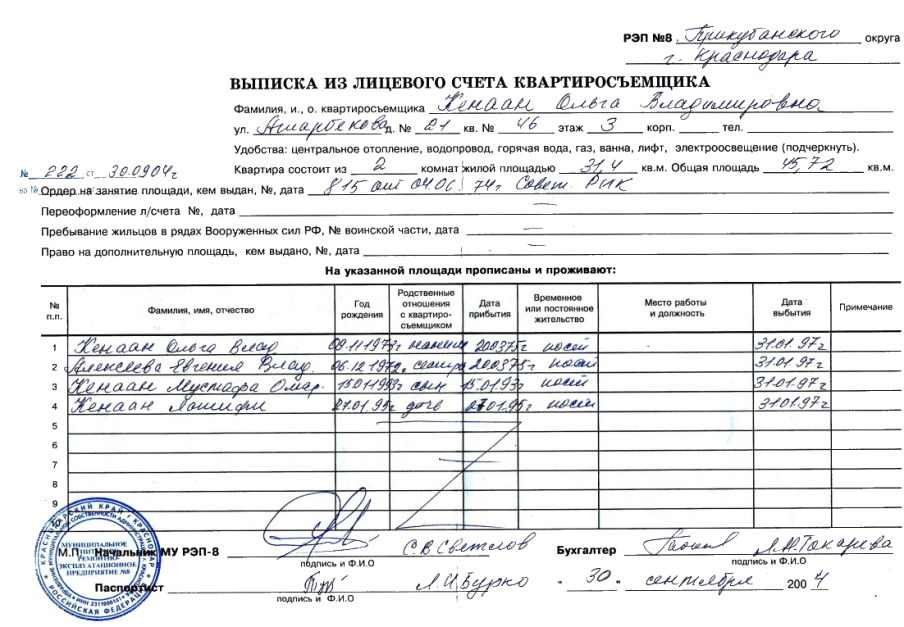 РЭП №8 Прикубанского округа
г. Краснодара
ВЫПИСКА ИЗ ЛИЦЕВОГО СЧЕТА КВАРТИРОСЪЕМЩИКА
Фамилия, и., о. квартиросъемщика Кенаан Ольга Владимировна
ул. Атарбекова д. № 21 кв. № 46 этаж 3 корп. тел.
Удобства: центральное отопление, водопровод, горячая вода, газ, ванна, лифт, электроосвещение (подчеркнуть).
№ 222 от 30.09.04г Квартира состоит из 2 комнат жилой площадью 31,4 кв.м. Общая площадь 45,72 кв.м.
на № Ордер на занятие площади, кем выдан, №, дата 815 от 04.06.74г Совет. РИК
Переоформление л/счета №, дата —
Пребывание жильцов в рядах Вооруженных сил РФ, № воинской части, дата —
Право на дополнительную площадь, кем выдано, №, дата —
На указанной площади прописаны и проживают:
№ п.п. Фамилия, имя, отчество Год рождения Родственные отношения с квартиро-съемщиком Дата прибытия Временное или постоянное жительство Место работы и должность Дата выбытия Примечание
1 Кенаан Ольга Влад 200375г пост 31.01.97г
2 Алексеева Евгения Влад. сестра 200375г пост 31.01.97г
3 Кенаан Мустафа Омар. 15.01.1993г сын 15.01.93г пост 31.01.97г
4 Кенаан 27.01.95г дочь 27.01.95г пост 31.01.97г
5
6
7
8
9
10
М.П. Начальник МУ РЭП-8 С.В.Светлов Бухгалтер Л.М.Токарева
подпись и Ф.И.О подпись и Ф.И.О
Паспортист Л.И.Бурко " 30 " сентября 2004
подпись и Ф.И.О
КРАСНОДАРСКИЙ КРАЙ г. КРАСНОДАР
МУНИЦИПАЛЬНОЕ
РЕМОНТНО-
ЭКСПЛУАТАЦИОННОЕ
ПРЕДПРИЯТИЕ №8
РОССИЙСКАЯ ФЕДЕРАЦИЯ